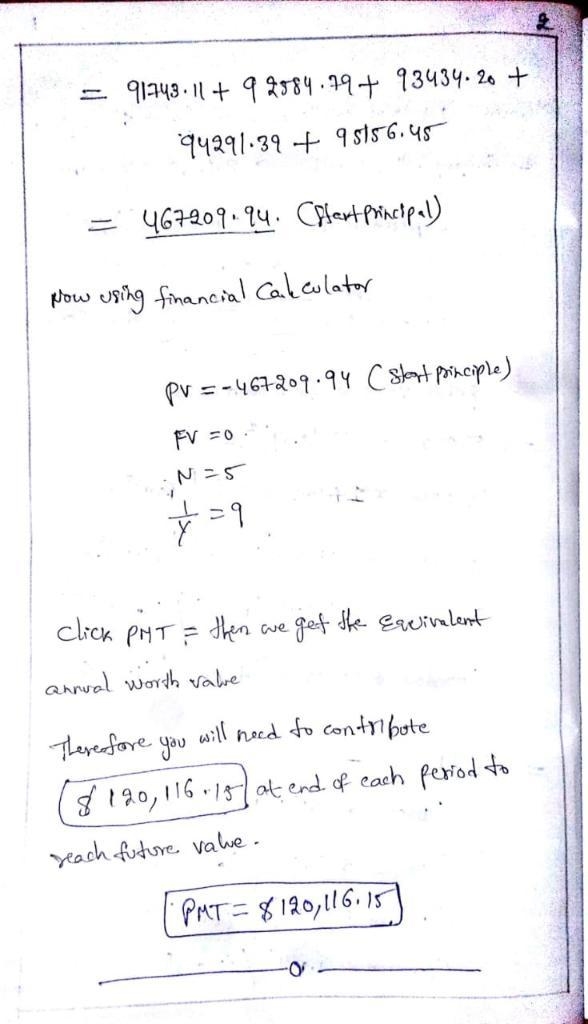 2
= 91743.11 + 92584.79 + 93434.20 +
94291.39 + 95156.45
= 467209.94. (Start principal)
Now using financial Calculator
PV = -467209.94 (Start principle)
FV = 0
N = 5
I/Y = 9
Click PMT = then we get the Equivalent
annual worth value
Therefore you will need to contribute
$ 120,116.15 at end of each period to
reach future value.
PMT = $ 120,116.15